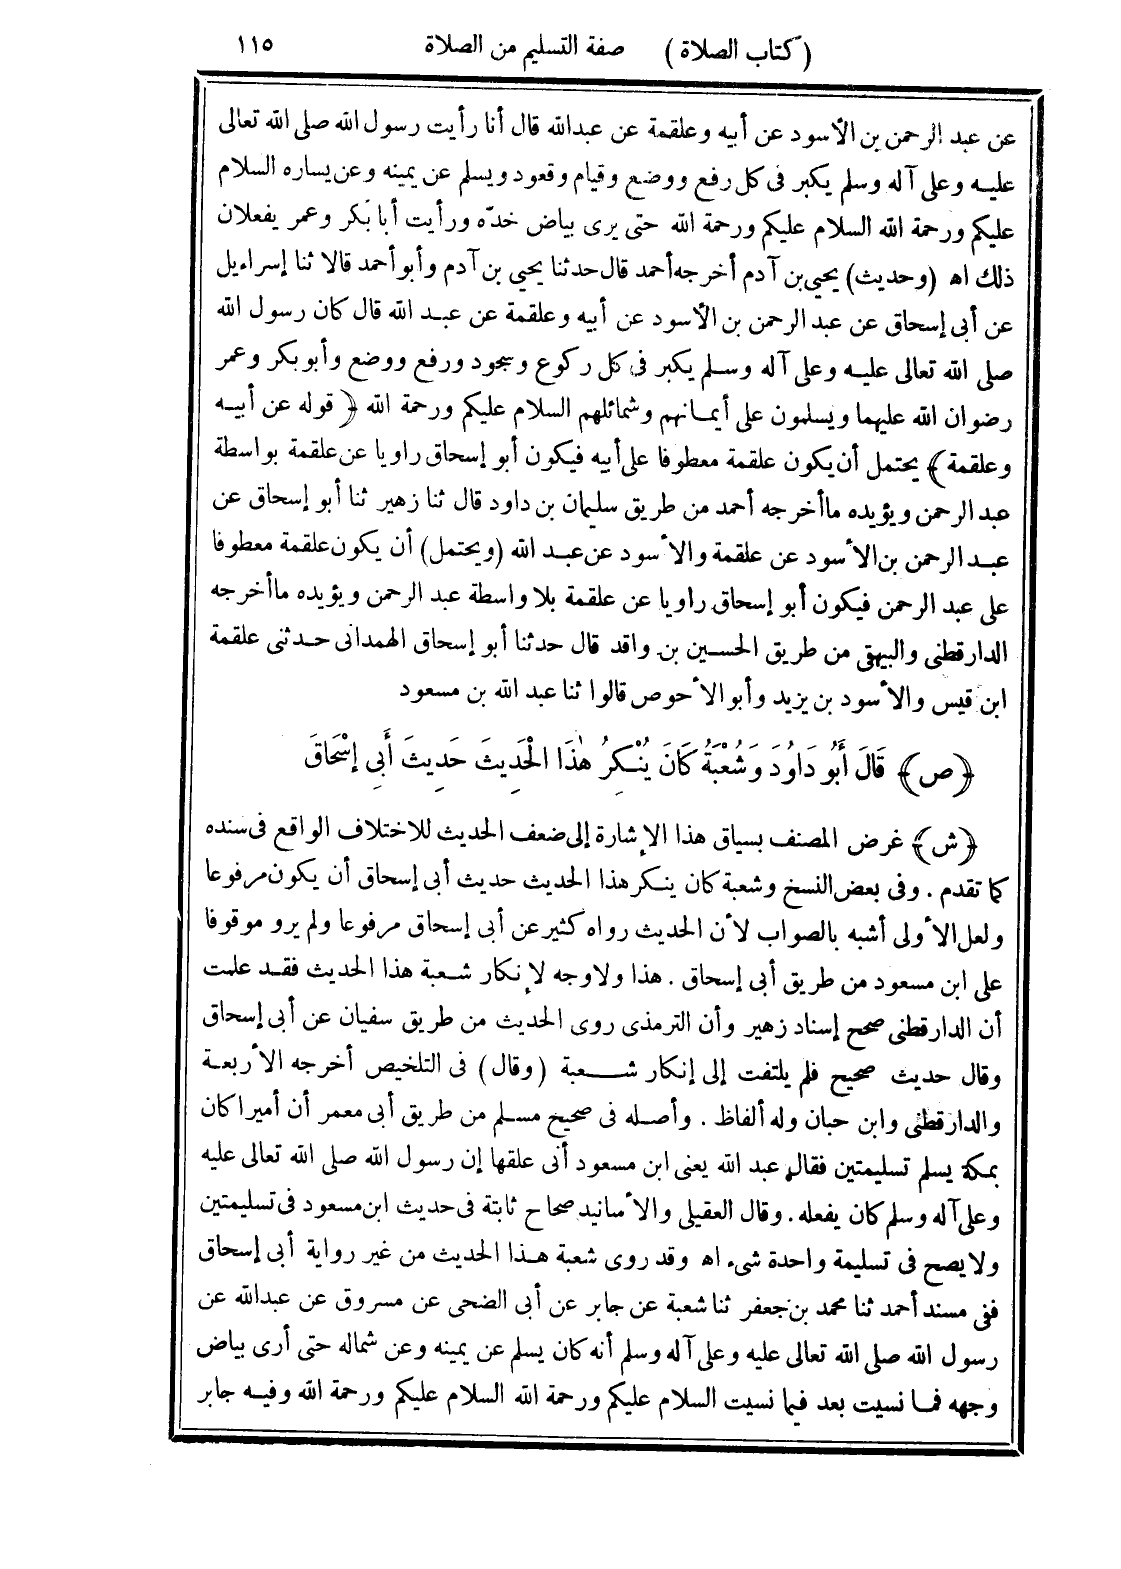 (كتاب الصلاة) صفة التسليم من الصلاة ١١٥
عن عبد الرحمن بن الأسود عن أبيه وعلقمة عن عبدالله قال أنا رأيت رسول الله صلى الله تعالى
عليه وعلى آله وسلم يكبر فى كل رفع ووضع وقيام وقعود ويسلم عن يمينه وعن يساره السلام
عليكم ورحمة الله السلام عليكم ورحمة الله حتى يرى بياض خدّه ورأيت أبا بكر وعمر يفعلان
ذلك اه (وحديث) يحيى بن آدم أخرجه أحمد قال حدثنا يحيى بن آدم وأبو أحمد قالا ثنا إسراءيل
عن أبى إسحاق عن عبد الرحمن بن الأسود عن أبيه وعلقمة عن عبد الله قال كان رسول الله
صلى الله تعالى عليه وعلى آله وسلم يكبر فى كل ركوع وسجود ورفع ووضع وأبو بكر وعمر
رضوان الله عليهما ويسلمون على أيمانهم وشمائلهم السلام عليكم ورحمة الله ﴿ قوله عن أبيه
وعلقمة ﴾ يحتمل أن يكون علقمة معطوفا على أبيه فيكون أبو إسحاق راويا عن علقمة بواسطة
عبد الرحمن ويؤيده ما أخرجه أحمد من طريق سليمان بن داود قال ثنا زهير ثنا أبو إسحاق عن
عبد الرحمن بن الأسود عن علقمة والأسود عن عبد الله (ويحتمل) أن يكون علقمة معطوفا
على عبد الرحمن فيكون أبو إسحاق راويا عن علقمة بلا واسطة عبد الرحمن ويؤيده ما أخرجه
الدارقطنى والبيهقى من طريق الحسين بن واقد قال حدثنا أبو إسحاق الهمدانى حدثنى علقمة
ابن قيس والأسود بن يزيد وأبو الأحوص قالوا ثنا عبد الله بن مسعود
﴿ص﴾ قَالَ أَبُو دَاوُدَ وَشُعْبَةُ كَانَ يُنْكِرُ هٰذَا الْحَدِيثَ حَدِيثَ أَبِى إِسْحَاقَ
﴿ش﴾ غرض المصنف بسياق هذا الإشارة إلى ضعف الحديث للاختلاف الواقع فى سنده
كما تقدم . وفى بعض النسخ وشعبة كان ينكر هذا الحديث حديث أبى إسحاق أن يكون مرفوعا
ولعل الأولى أشبه بالصواب لأن الحديث رواه كثير عن أبى إسحاق مرفوعا ولم يرو موقوفا
على ابن مسعود من طريق أبى إسحاق . هذا ولا وجه لإنكار شعبة هذا الحديث فقد علمت
أن الدارقطنى صحح إسناد زهير وأن الترمذى روى الحديث من طريق سفيان عن أبى إسحاق
وقال حديث صحيح فلم يلتفت إلى إنكار شعبة (وقال) فى التلخيص أخرجه الأربعة
والدارقطنى وابن حبان وله ألفاظ . وأصله فى صحيح مسلم من طريق أبى معمر أن أميرا كان
بمكة يسلم تسليمتين فقال عبد الله يعنى ابن مسعود أنى علقها إن رسول الله صلى الله تعالى عليه
وعلى آله وسلم كان يفعله . وقال العقيلى والأسانيد صحاح ثابتة فى حديث ابن مسعود فى تسليمتين
ولا يصح فى تسليمة واحدة شىء اه وقد روى شعبة هذا الحديث من غير رواية أبى إسحاق
ففى مسند أحمد ثنا محمد بن جعفر ثنا شعبة عن جابر عن أبى الضحى عن مسروق عن عبدالله عن
رسول الله صلى الله تعالى عليه وعلى آله وسلم أنه كان يسلم عن يمينه وعن شماله حتى أرى بياض
وجهه فما نسيت بعد فيما نسيت السلام عليكم ورحمة الله السلام عليكم ورحمة الله وفيه جابر